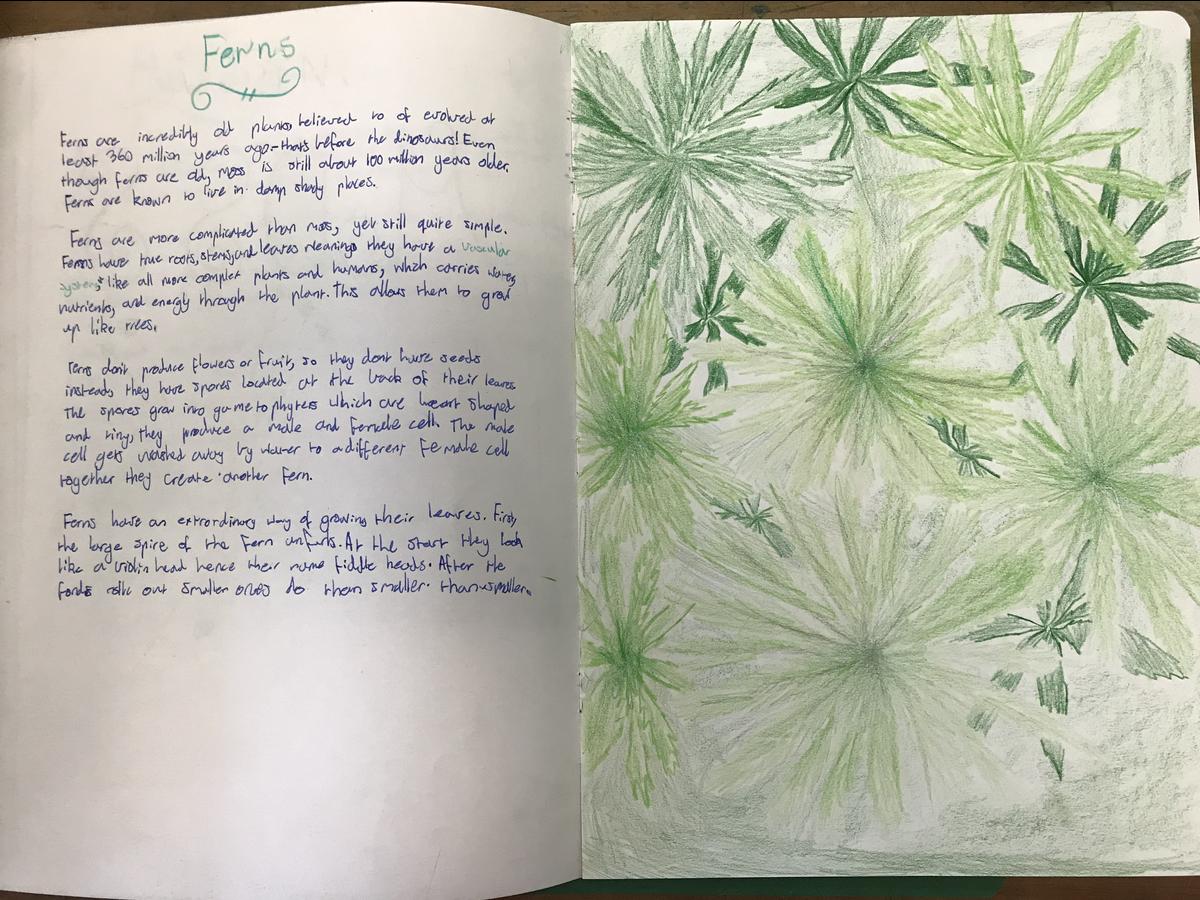 Ferns
Ferns are incredibly old plants, believed to of evolved at
least 360 million years ago-thats before the dinosaurs! Even
though ferns are old, moss is still about 100 million years older.
Ferns are known to live in damp shady places.
Ferns are more complicated than moss, yet still quite simple.
Ferns have true roots, stems, and leaves meaning they have a vascular
system, like all more complex plants and humans, which carries water,
nutrients, and energy through the plant. This allows them to grow
up like trees.
Ferns don't produce flowers or fruit, so they dont have seeds
instead, they have spores located at the back of their leaves.
The spores grow into gametophytes which are heart shaped
and tiny, they produce a male and female cell. The male
cell gets washed away by water to a different female cell
together they create another fern.
Ferns have an extrordinary way of growing their leaves. First,
the large spire of the Fern unfurls. At the start they look
like a violin head hence their name fiddle heads. After the
fonds rolls out smaller ones do then smaller than smaller.